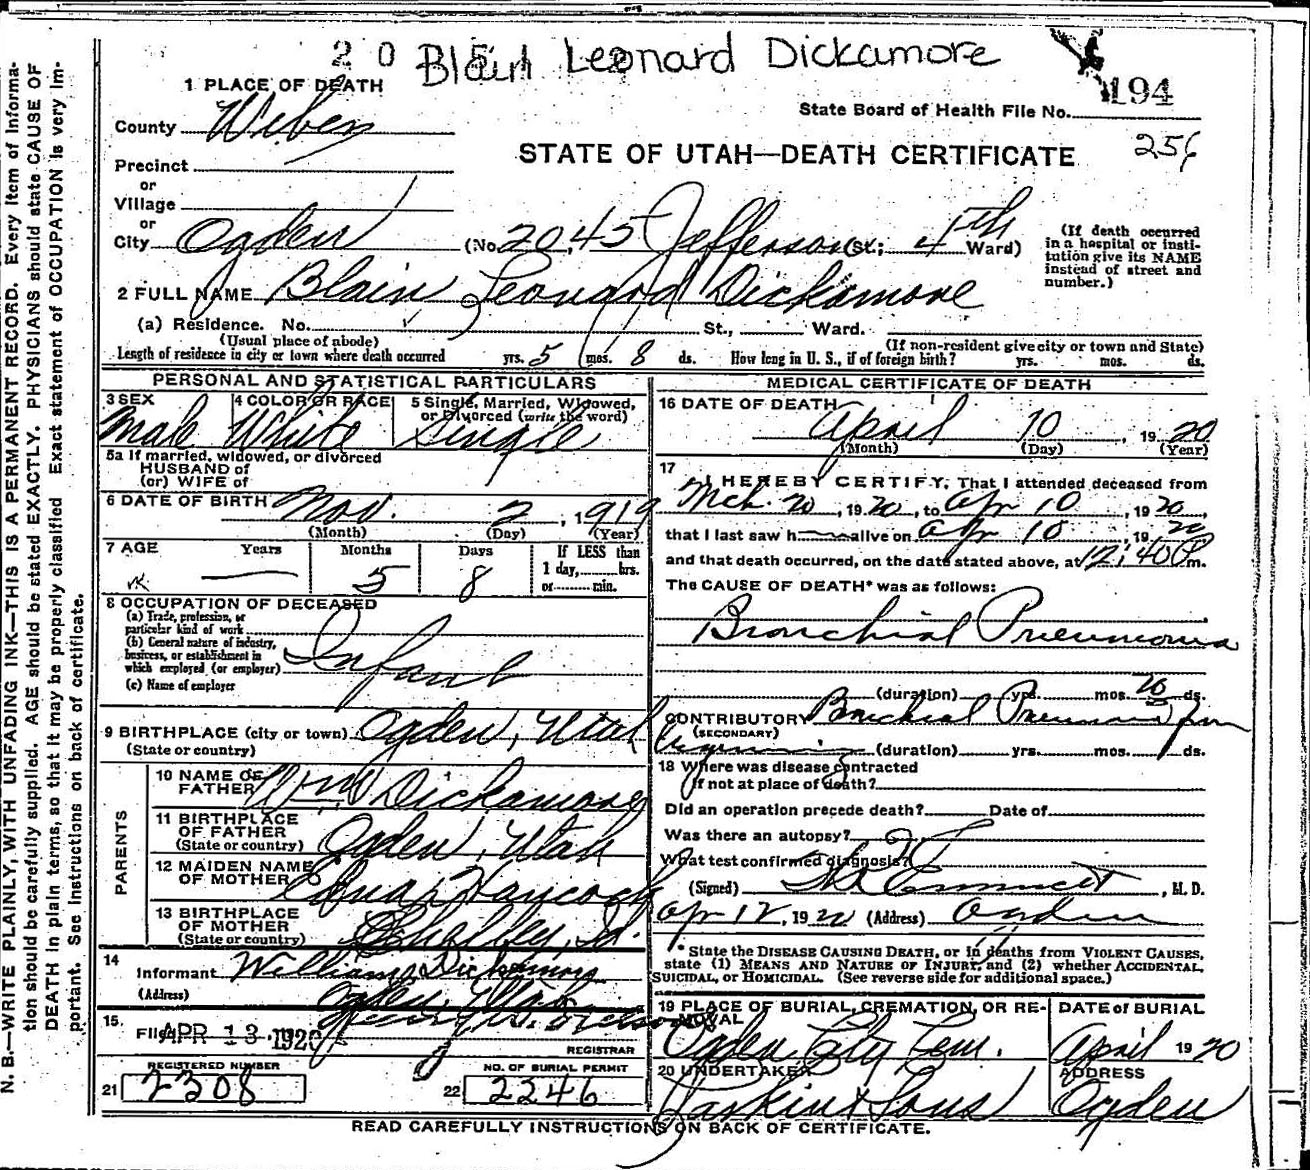 2 0 5
Blain Leonard Dickamore
1 PLACE OF DEATH
194
State Board of Health File No.
County Weber
STATE OF UTAH—DEATH CERTIFICATE
256
Precinct
or
Village
or
City Ogden (No. 2045 Jefferson St.; 4th Ward)
(If death occurred in a hospital or institution give its NAME instead of street and number.)
2 FULL NAME Blain Leonard Dickamore
(a) Residence. No. St., Ward.
(Usual place of abode) (If non-resident give city or town and State)
Length of residence in city or town where death occurred yrs. 5 mos. 8 ds. How long in U. S., if of foreign birth? yrs. mos. ds.
PERSONAL AND STATISTICAL PARTICULARS
3 SEX 4 COLOR OR RACE 5 Single, Married, Widowed, or Divorced (write the word)
Male White Single
5a If married, widowed, or divorced
HUSBAND of
(or) WIFE of
6 DATE OF BIRTH Nov. 2, 1919
(Month) (Day) (Year)
7 AGE Years Months Days If LESS than
1 day, hrs.
5 8 or min.
8 OCCUPATION OF DECEASED
(a) Trade, profession, or
particular kind of work
(b) General nature of industry,
business, or establishment in
which employed (or employer) Infant
(c) Name of employer
9 BIRTHPLACE (city or town) Ogden, Utah
(State or country)
PARENTS
10 NAME OF FATHER Wm Dickamore
11 BIRTHPLACE OF FATHER Ogden, Utah
(State or country)
12 MAIDEN NAME OF MOTHER Haycock
13 BIRTHPLACE OF MOTHER Shelley, Id.
(State or country)
14
Informant William Dickamore
(Address) Ogden, Utah
15. Filed APR 13 1920
REGISTRAR
REGISTERED NUMBER NO. OF BURIAL PERMIT
21 2308 22 2246
MEDICAL CERTIFICATE OF DEATH
16 DATE OF DEATH
April 10, 1920
(Month) (Day) (Year)
17
I HEREBY CERTIFY, That I attended deceased from
Mch. 20, 1920, to Apr 10, 1920,
that I last saw h alive on Apr 10, 1920
and that death occurred, on the date stated above, at 12:40 P m.
The CAUSE OF DEATH* was as follows:
Bronchial Pneumonia
(duration) yrs. mos. ds.
CONTRIBUTORY Bronchial Pneumonia from
(SECONDARY)
(duration) yrs. mos. ds.
18 Where was disease contracted
if not at place of death?
Did an operation precede death? Date of
Was there an autopsy?
What test confirmed diagnosis?
(Signed) Emmett, M. D.
Apr 12, 1920 (Address) Ogden
* State the DISEASE CAUSING DEATH, or in deaths from VIOLENT CAUSES,
state (1) MEANS AND NATURE OF INJURY, and (2) whether ACCIDENTAL,
SUICIDAL, or HOMICIDAL. (See reverse side for additional space.)
19 PLACE OF BURIAL, CREMATION, OR REMOVAL DATE of BURIAL
Ogden City Cem. April 1920
20 UNDERTAKER ADDRESS
Larkin & Sons Ogden
READ CAREFULLY INSTRUCTIONS ON BACK OF CERTIFICATE.
N. B.—WRITE PLAINLY, WITH UNFADING INK—THIS IS A PERMANENT RECORD. Every item of informa-
tion should be carefully supplied. AGE should be stated EXACTLY. PHYSICIANS should state CAUSE OF
DEATH in plain terms, so that it may be properly classified. Exact statement of OCCUPATION is very im-
portant. See instructions on back of certificate.